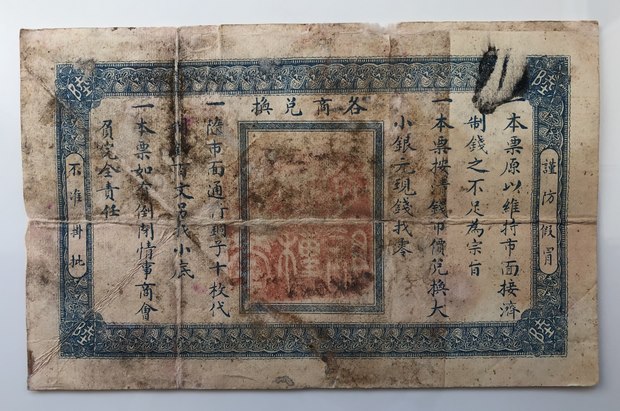 各商兌換
陸
謹防假冒
陸
一本票原以維持市面接濟
制錢之不足為宗旨
一本票按清錢市價兌換大
小銀元現錢找零
一隨市面通行銅子十枚代
百文另找小底
一本票如有倒閉情事商會
負完全責任
陸
不准掛批
陸